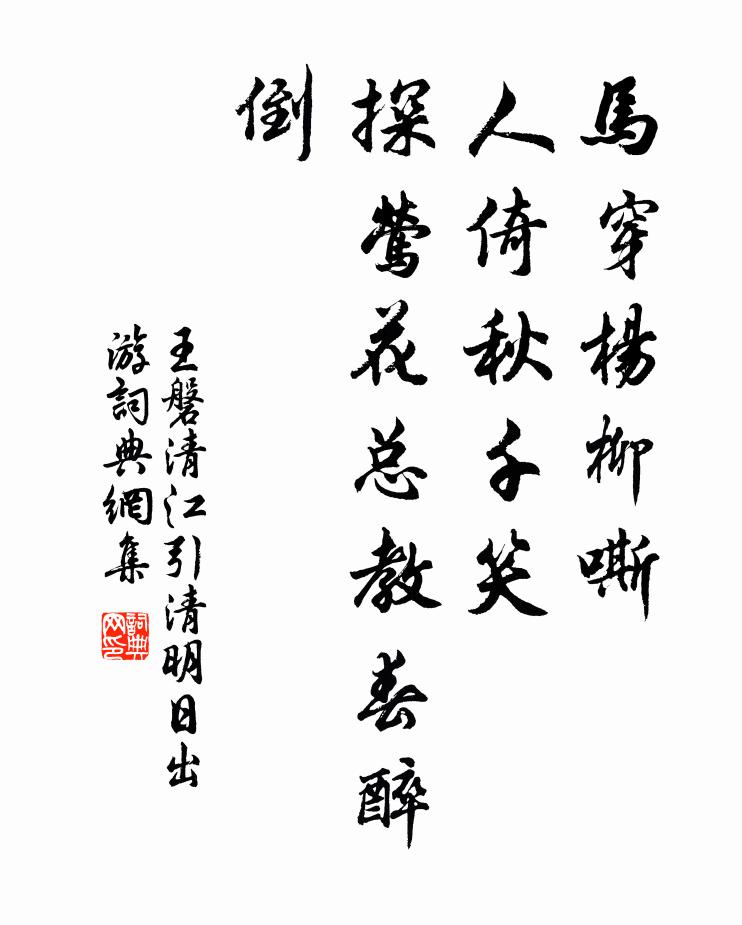 馬穿楊柳嘶
人倚秋千笑
探鶯花总教春醉
倒
王磐清江引清明日出
游詞典網集
詞典网印